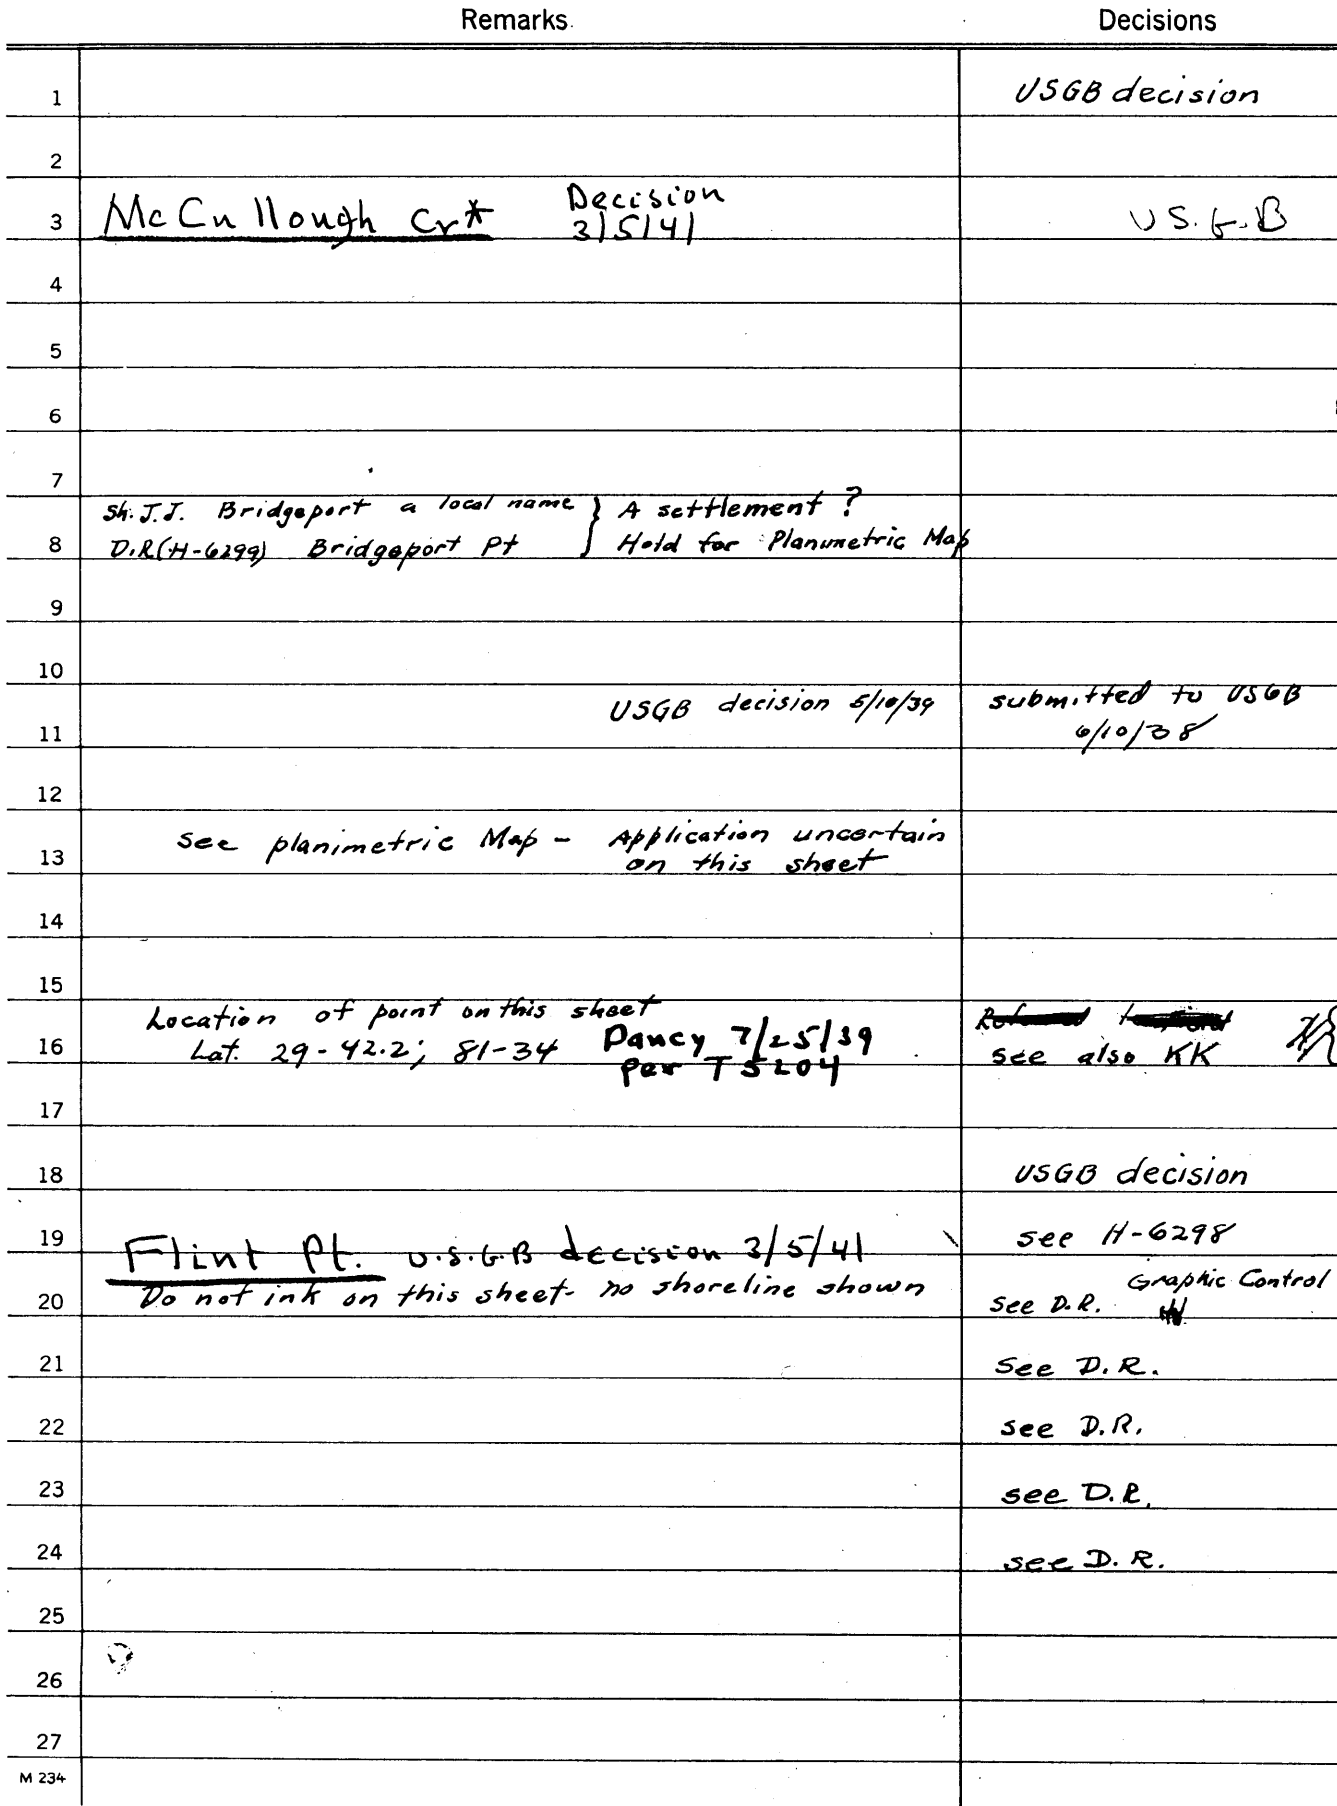 Remarks Decisions
1 USGB decision
2
3 McCullough Cr* Decision 3/5/41 U.S.G.B
4
5
6
7
Sh. J.J. Bridgeport a local name } A settlement ?
8 D.R. (H-6299) Bridgeport Pt } Hold for Planimetric Map
9
10
USGB decision 5/10/39 submitted to USGB
11 6/10/38
12
see planimetric Map - Application uncertain
13 on this sheet
14
15
Location of point on this sheet
16 Lat. 29-42.2; 81-34 Dancy 7/25/39 see also KK
per T5204
17
18 USGB decision
19 Flint Pt. U.S.G.B decision 3/5/41 see H-6298
20 Do not ink on this sheet - no shoreline shown see D.R. Graphic Control
21 see D.R.
22 see D.R.
23 see D.R.
24 see D.R.
25
26
27
M 234